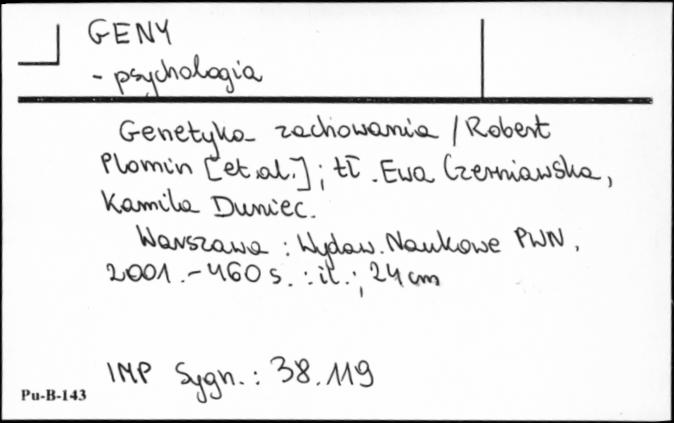 GENY
- psychologia
Genetyka zachowania / Robert
Plomin [et.al.] ; tł. Ewa Czerniawska,
Kamila Duniec.
Warszawa : Wydaw. Naukowe PWN,
2001. - 460 s. : il. ; 24 cm
IMP Sygn. : 38.119
Pu-B-143